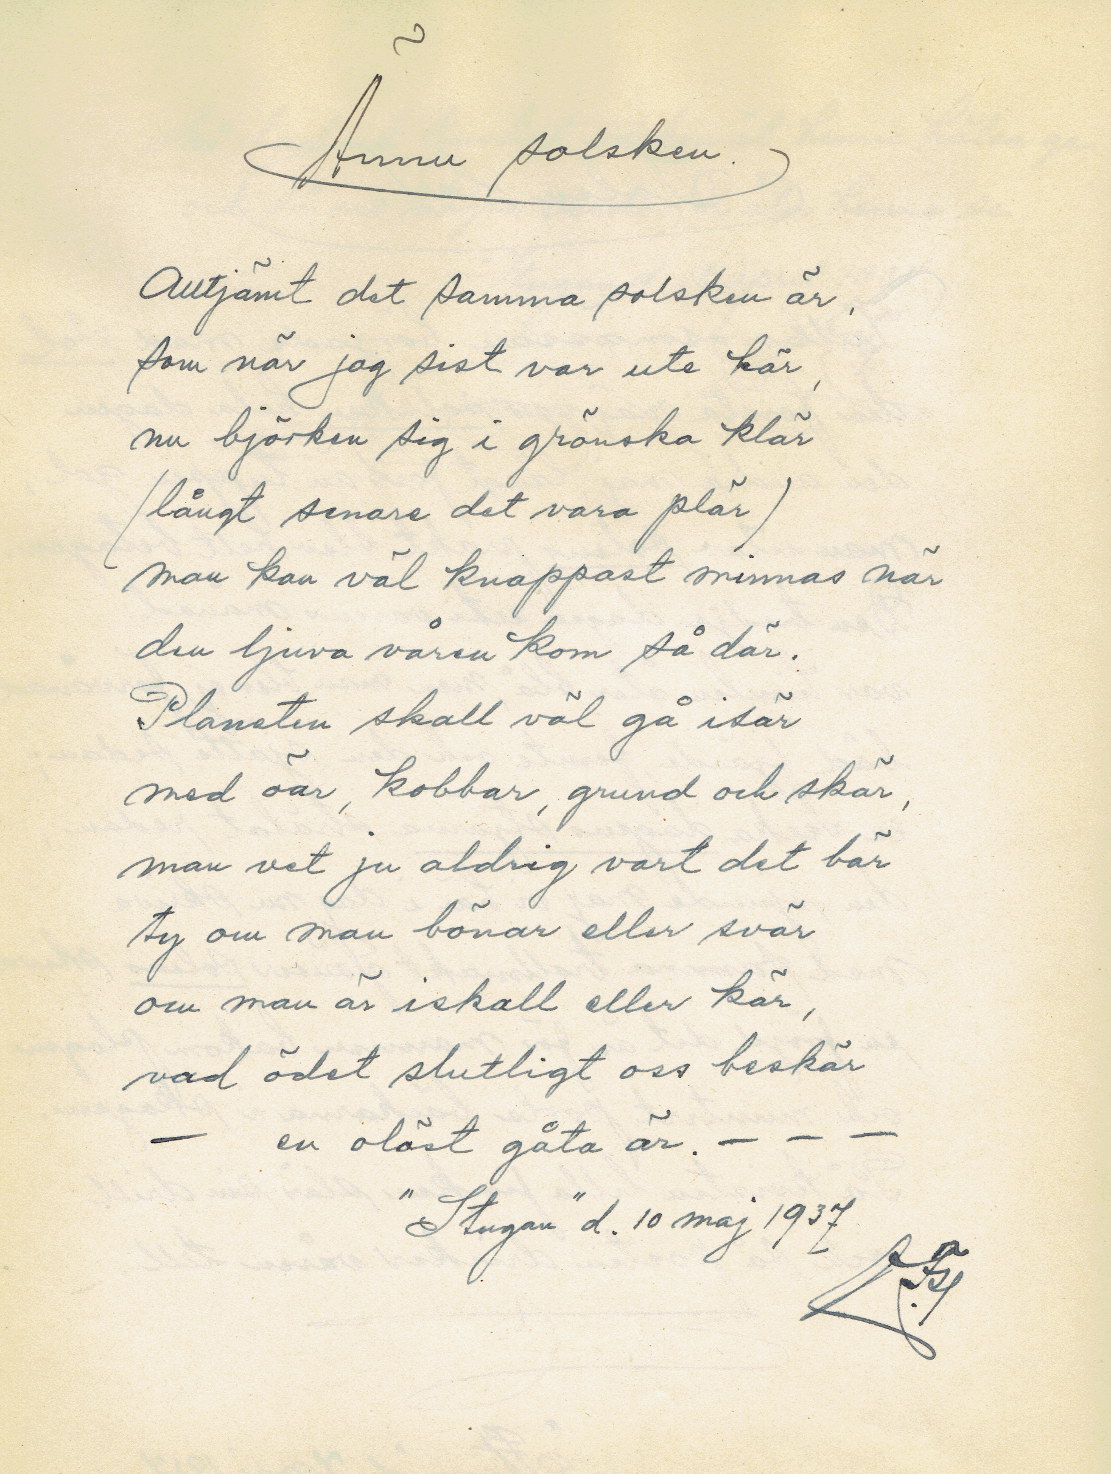 Ännu solsken.
Alltjämt det samma solsken är,
som när jag sist var ute här,
nu björken sig i grönska klär
(långt senare det vara plär)
man kan väl knappast minnas när
den ljuva våren kom så där.
Planeten skall väl gå isär
med öar, kobbar, grund och skär,
man vet ju aldrig vart det bär
ty om man bönar eller svär
om man är iskall eller kär,
vad ödet slutligt oss beskär
— en olöst gåta är. — — —
"Stugan" d. 10 maj 1937